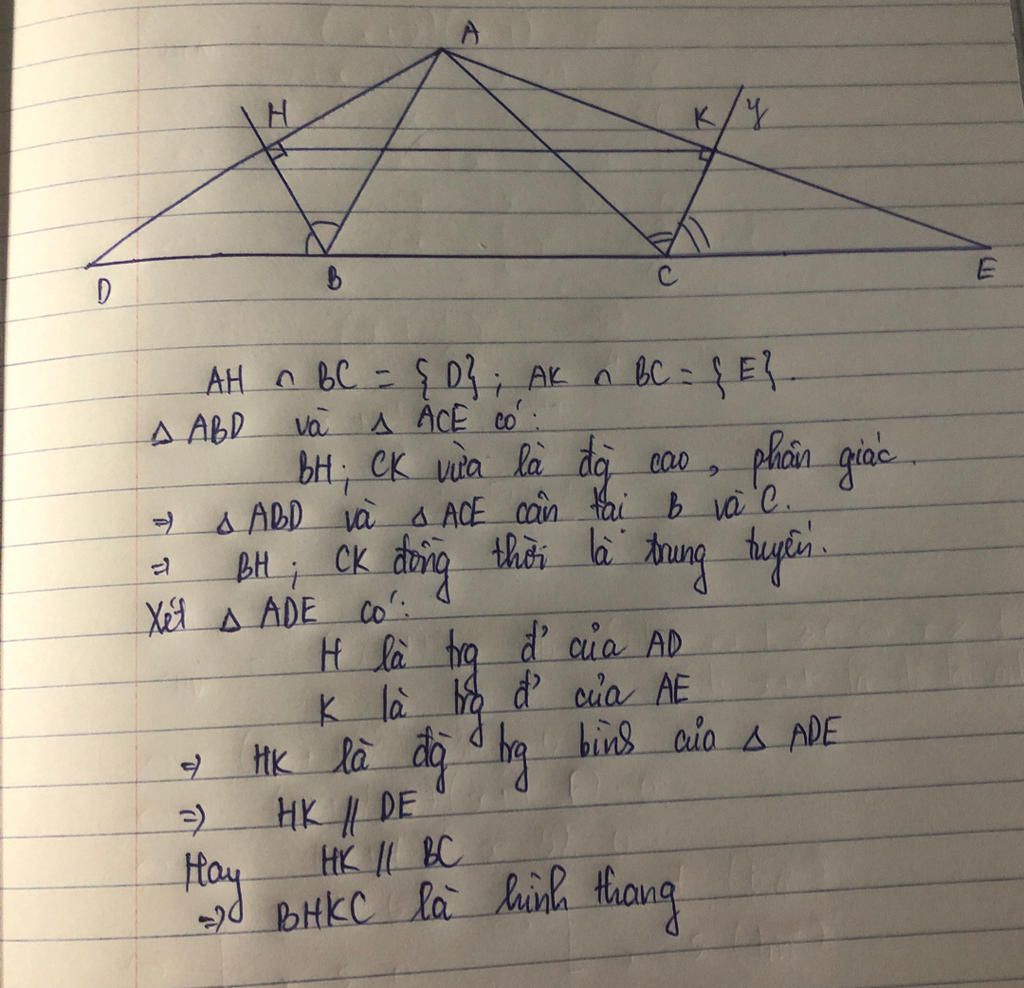 A
H
K
y
D
B
C
E
AH ∩ BC = {D}; AK ∩ BC = {E}.
△ ABD và △ ACE có:
BH; CK vừa là đg̀ cao, phân giác.
⇒ △ ABD và △ ACE cân tại B và C.
⇒ BH; CK đồng thời là trung tuyến.
Xét △ ADE có:
H là trg đ' của AD
K là trg đ' của AE
⇒ HK là đg̀ trg bình của △ ADE
⇒ HK // DE
Hay HK // BC
⇒ BHKC là hình thang